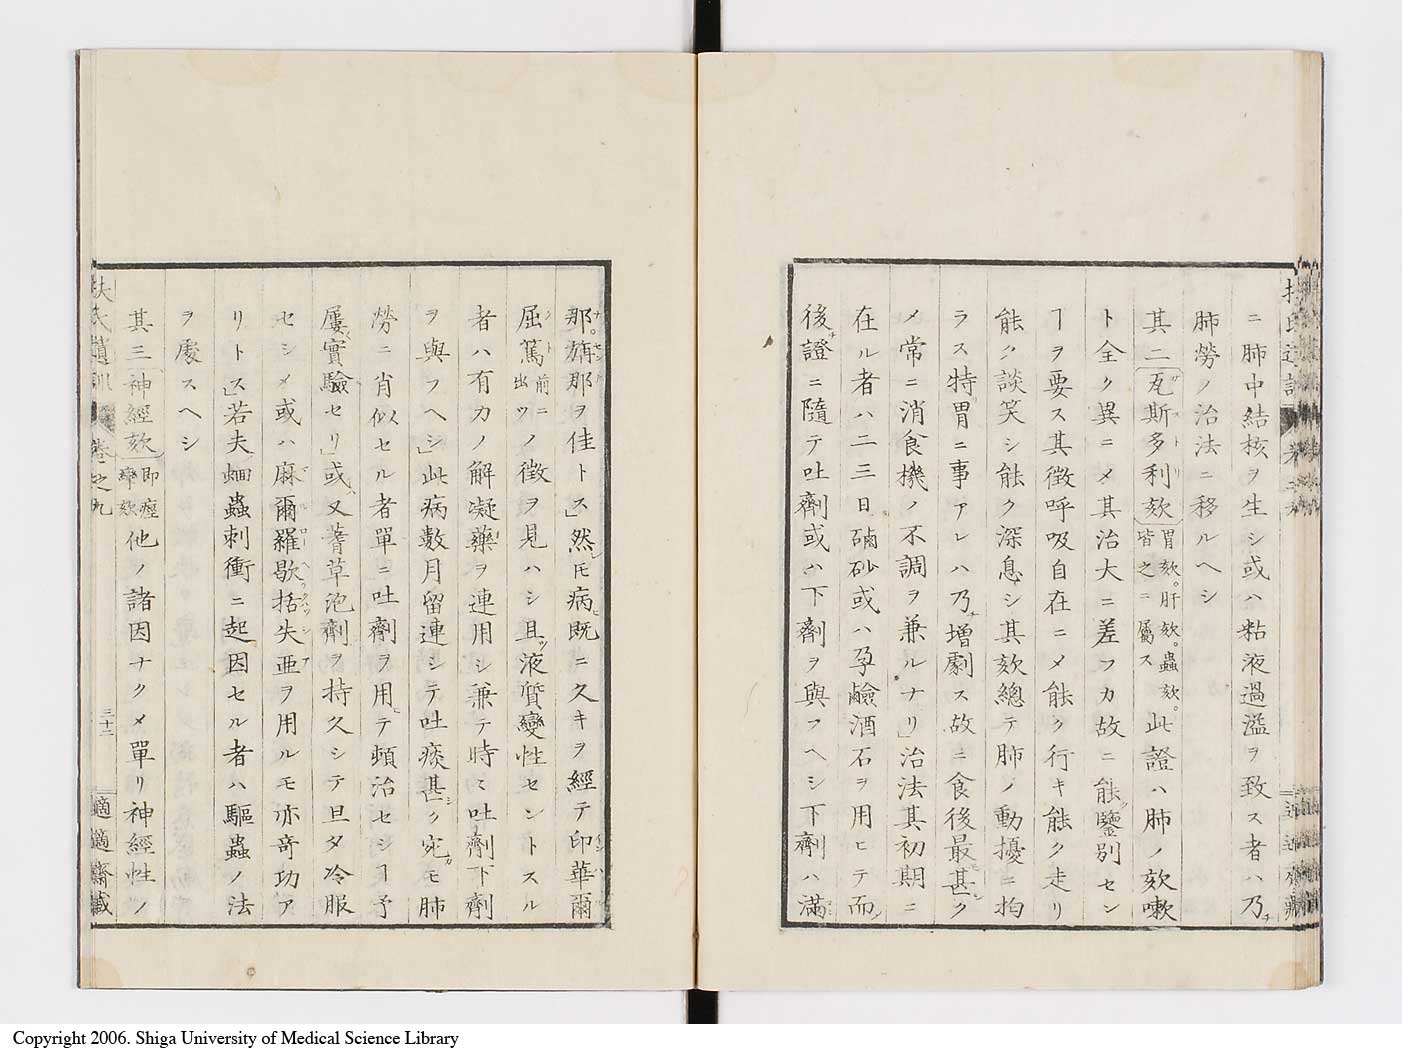 ニ肺中結核ヲ生シ或ハ粘液過溢ヲ致ス者ハ乃チ
肺勞ノ治法ニ移ルヘシ
其二瓦斯多利欬胃欬。肝欬。蟲欬。皆之ニ屬ス此證ハ肺ノ欬嗽
ト全ク異ニメ其治大ニ差フカ故ニ能ク鑒別セン
ヿヲ要ス其徴呼吸自在ニメ能ク行キ能ク走リ
能ク談笑シ能ク深息シ其欬總テ肺ノ動擾ニ拍
ラス特胃ニ事アレハ乃チ增劇ス故ニ食後最モ甚シク
メ常ニ消食機ノ不調ヲ兼ルナリ」治法其初期ニ
在ル者ハ二三日磠砂或ハ孕鹼酒石ヲ用ヒテ而シ
後チ證ニ隨テ吐劑或ハ下劑ヲ與フヘシ下劑ハ滿
那。旃那ヲ佳トス」然レ𪜈病既ニ久キヲ經テ印華爾
屈篤前ニ出ツノ徴ヲ見ハシ且ツ液質變性セントスル
者ハ有力ノ解凝藥ヲ連用シ兼テ時々吐劑下劑
ヲ與フヘシ」此病數月留連シテ吐痰甚シク宛モ肺
勞ニ肖似セル者單ニ吐劑ヲ用ヒテ頓治セシヿ予
屢實驗セリ」或ハ又蓍草泡劑ヲ持久シテ旦夕冷服
セシメ或ハ麻爾羅歇括失亜ヲ用ルモ亦奇功ア
リトス」若夫蛔蟲刺衝ニ起因セル者ハ驅蟲ノ法
ヲ處スヘシ
其三神經欬即痙攣欬他ノ諸因ナクメ單リ神經性ノ
扶氏遺訓 卷之九 三十二 適適齋藏